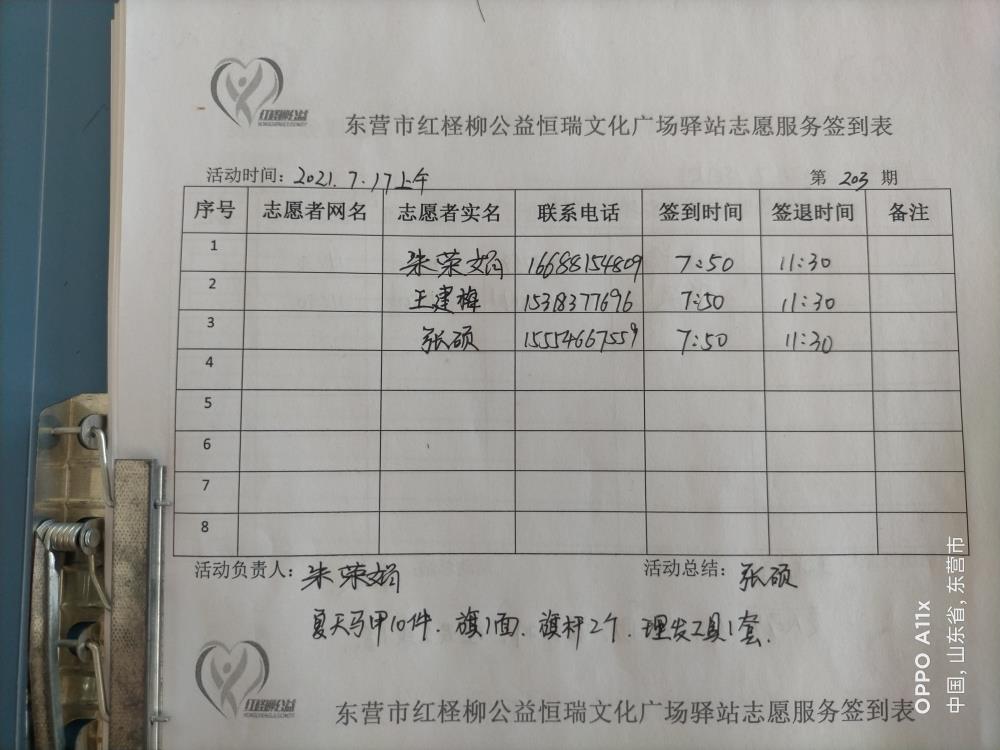 红柽柳公益
东营市红柽柳公益恒瑞文化广场驿站志愿服务签到表
活动时间：2021.7.17上午 第 203 期
序号 志愿者网名 志愿者实名 联系电话 签到时间 签退时间 备注
1 朱荣娟 16688154809 7:50 11:30
2 王建梅 15318377696 7:50 11:30
3 张硕 15554667559 7:50 11:30
4
5
6
7
8
活动负责人：朱荣娟 活动总结：张硕
夏天马甲10件．旗1面．旗杆2个．理发工具1套．
红柽柳公益
东营市红柽柳公益恒瑞文化广场驿站志愿服务签到表
OPPO A11x
中国, 山东省, 东营市